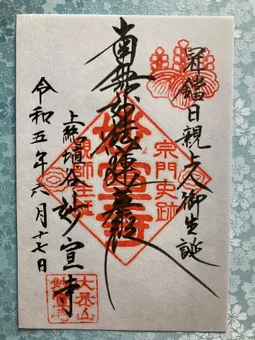 冠鐺日親上人御生誕
宗門史跡
南無妙法蓮華経
上総埴谷 妙宣寺
令和五年六月十七日
大乗山
妙宣寺